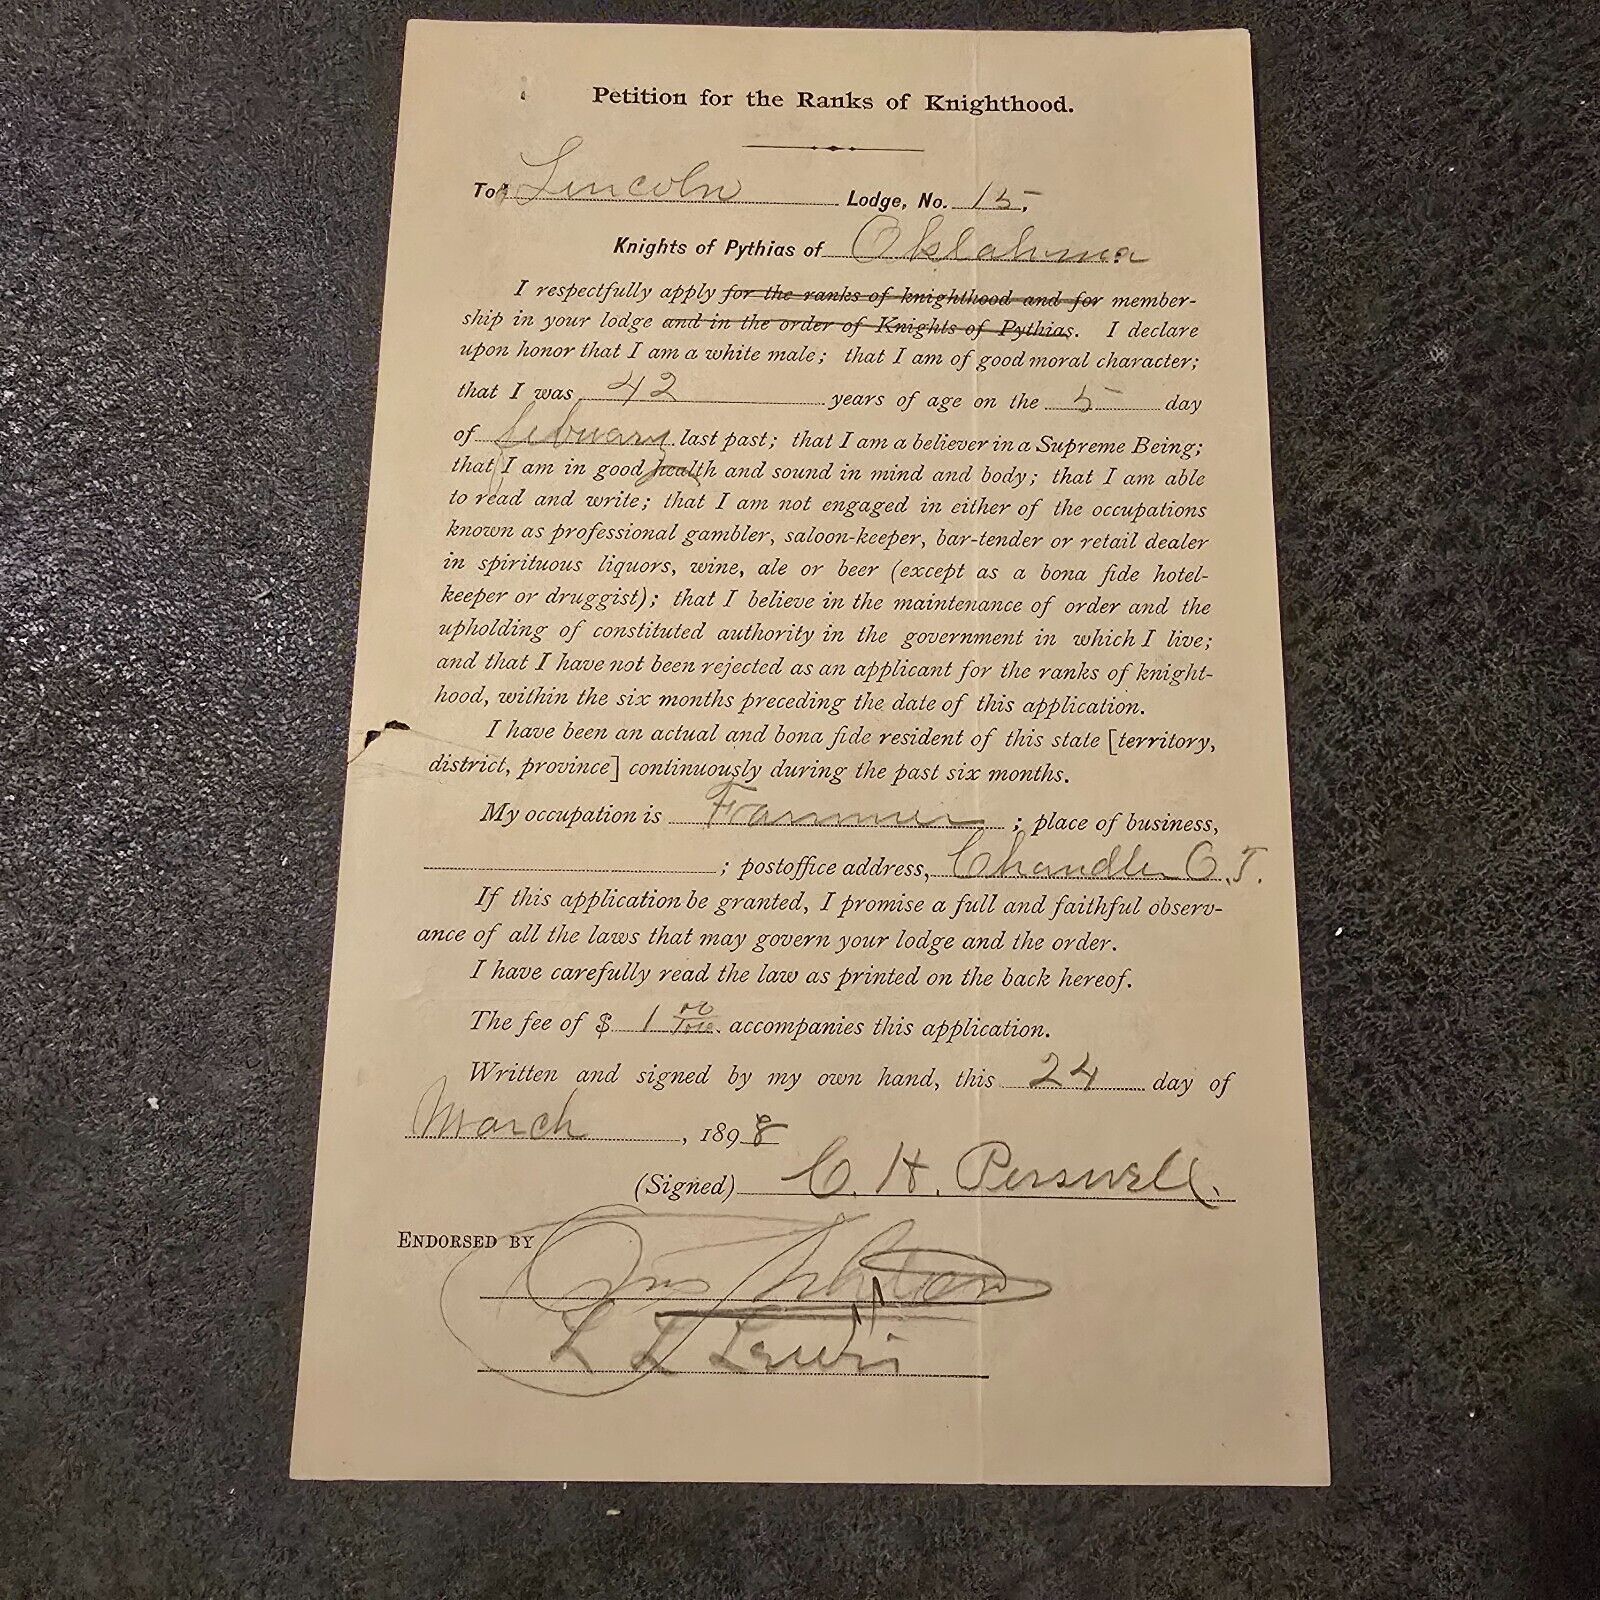 Petition for the Ranks of Knighthood.
To Lincoln Lodge, No. 15,
Knights of Pythias of Oklahoma
I respectfully apply for the ranks of knighthood and for member-
ship in your lodge and in the order of Knights of Pythias. I declare
upon honor that I am a white male; that I am of good moral character;
that I was 42 years of age on the 5 day
of february last past; that I am a believer in a Supreme Being;
that I am in good health and sound in mind and body; that I am able
to read and write; that I am not engaged in either of the occupations
known as professional gambler, saloon-keeper, bar-tender or retail dealer
in spirituous liquors, wine, ale or beer (except as a bona fide hotel-
keeper or druggist); that I believe in the maintenance of order and the
upholding of constituted authority in the government in which I live;
and that I have not been rejected as an applicant for the ranks of knight-
hood, within the six months preceding the date of this application.
I have been an actual and bona fide resident of this state [territory,
district, province] continuously during the past six months.
My occupation is ; place of business,
; postoffice address, Chandler O.T.
If this application be granted, I promise a full and faithful observ-
ance of all the laws that may govern your lodge and the order.
I have carefully read the law as printed on the back hereof.
The fee of $ 1 00/100 accompanies this application.
Written and signed by my own hand, this 24 day of
March, 1898
(Signed) C. H. Perswell.
ENDORSED BY
L L Lewis